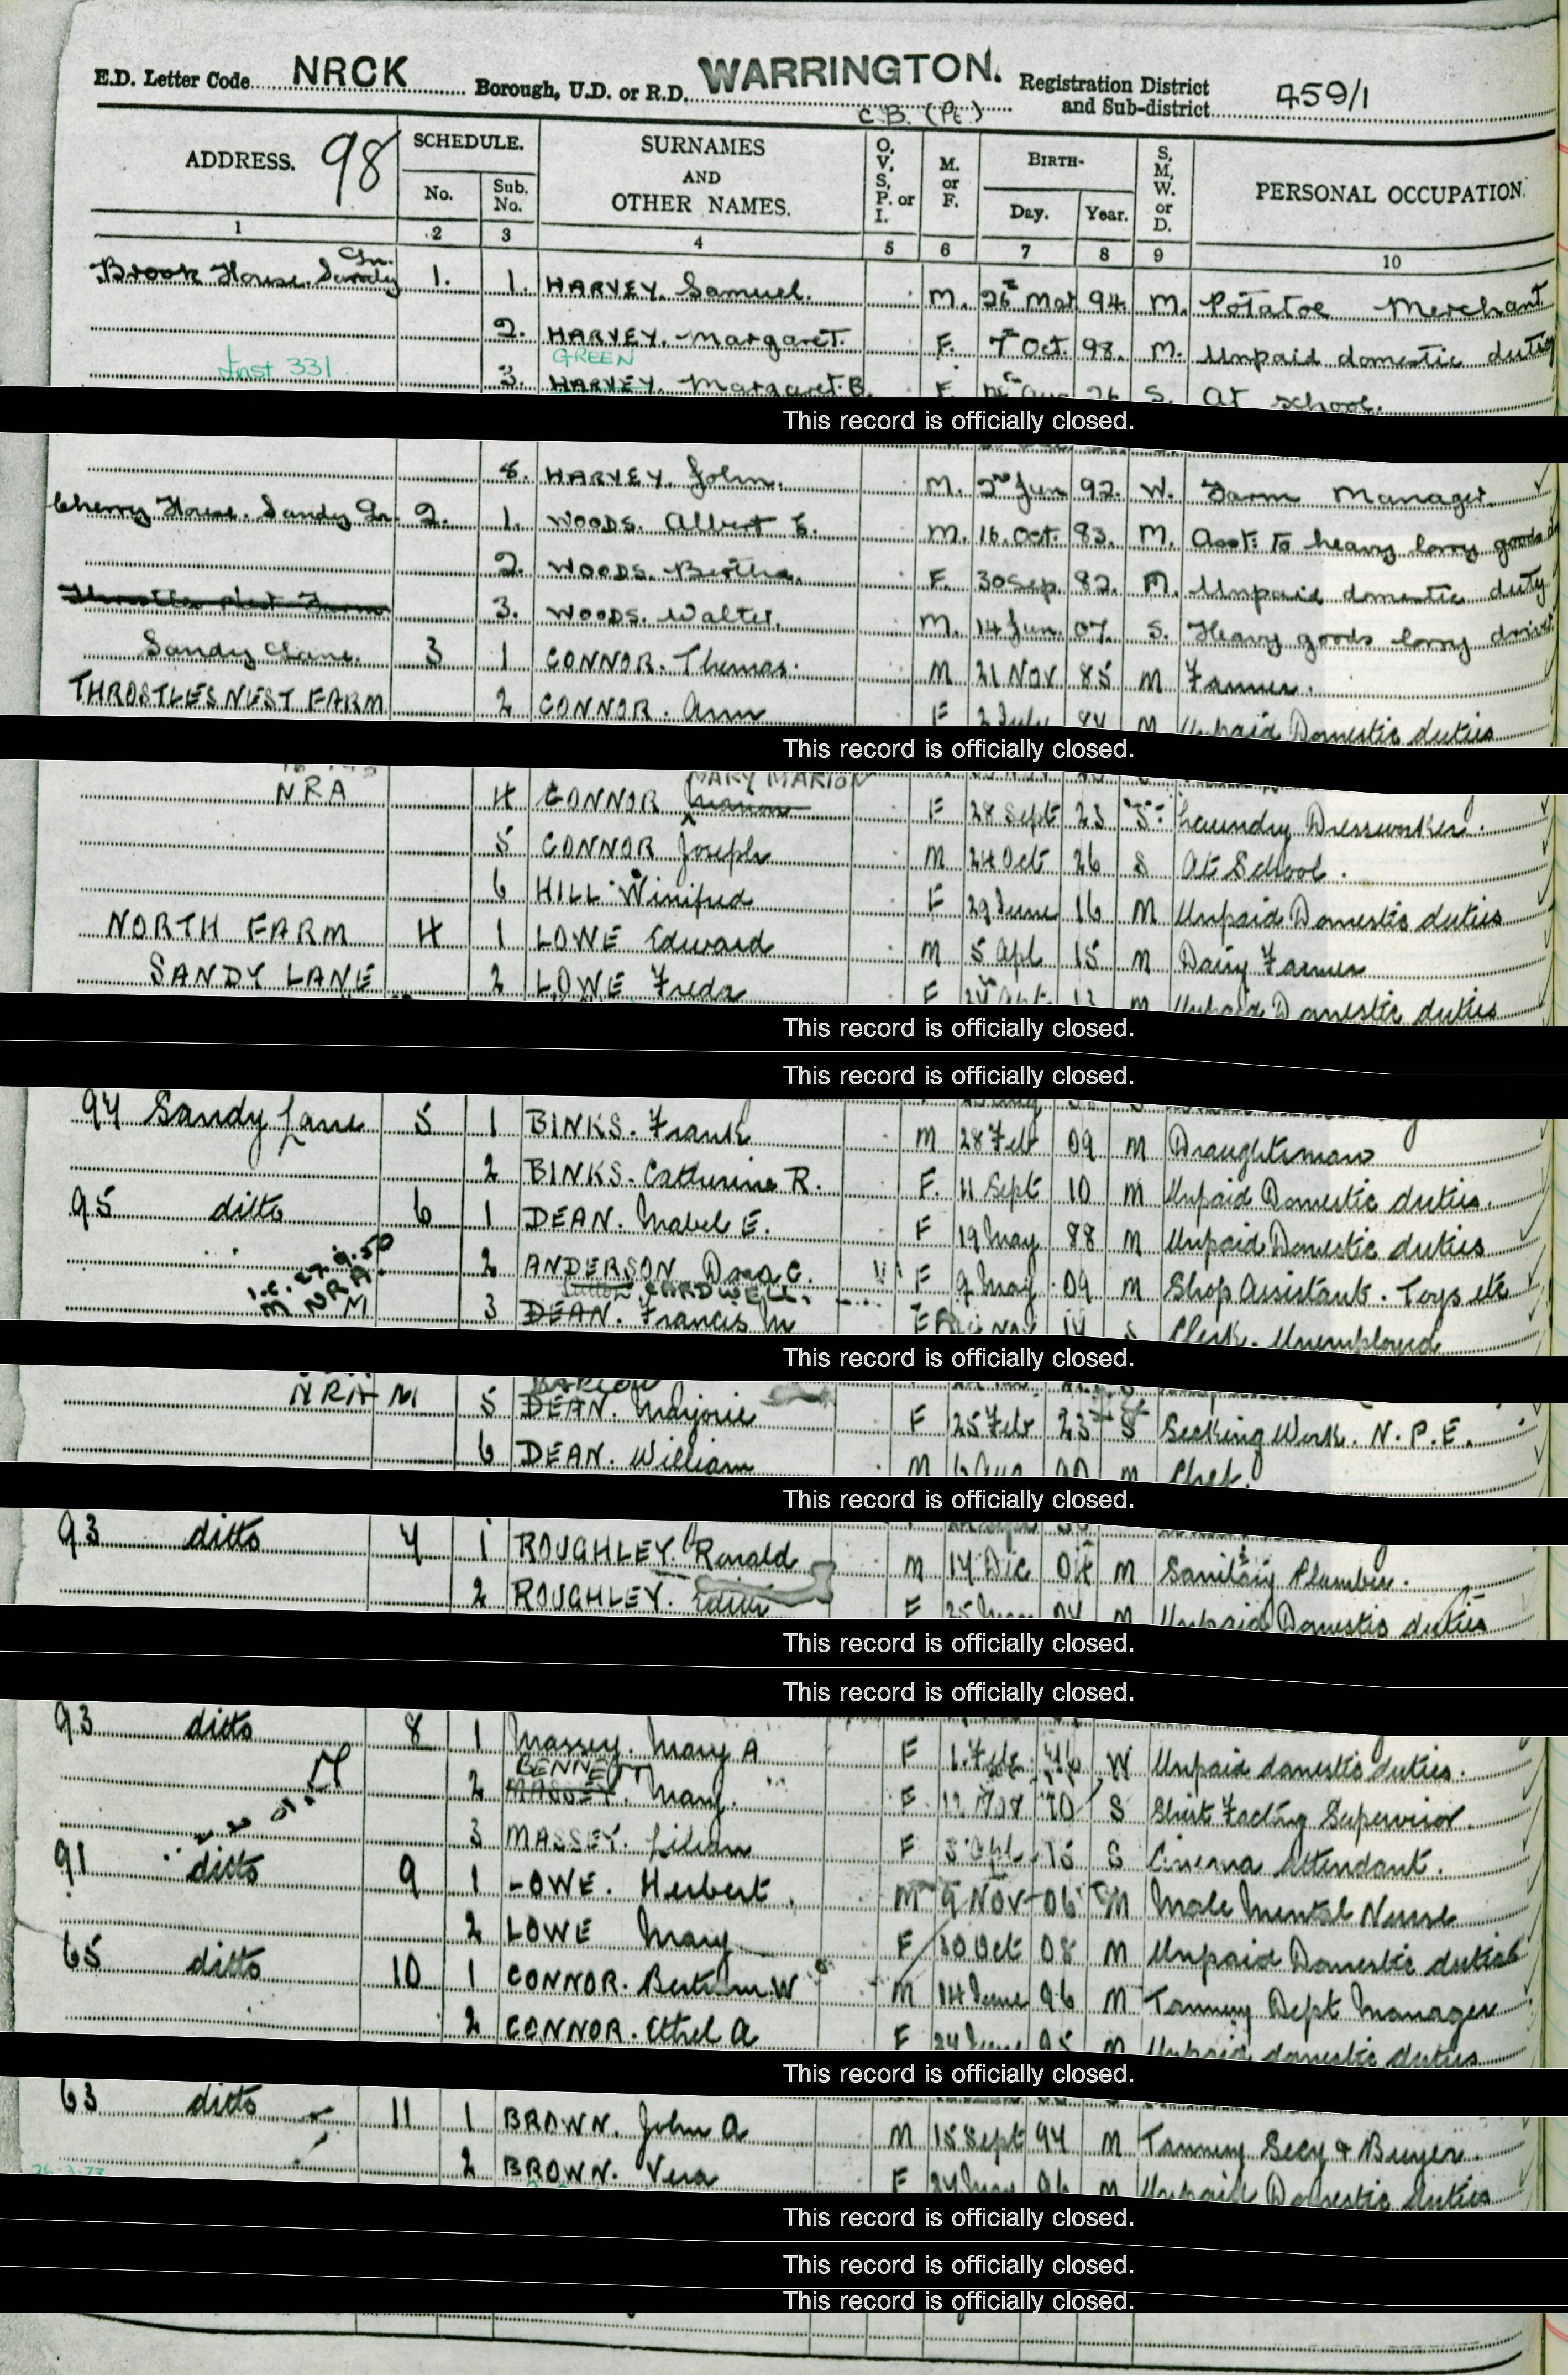 E.D. Letter Code NRCK Borough, U.D. or R.D. WARRINGTON. Registration District and Sub-district 459/1
C.B. (Pt.)
ADDRESS. 98 SCHEDULE. No. Sub. No. SURNAMES AND OTHER NAMES. O. V. S. P. or I. M. or F. BIRTH- Day. Year. S. M. W. or D. PERSONAL OCCUPATION.
1 2 3 4 5 6 7 8 9 10
Brook House. Sandy Ln. 1. 1. HARVEY. Samuel. M. 26 Mar 94. M. Potatoe Merchant.
2. HARVEY. Margaret. F. 7 Oct. 98. M. Unpaid domestic duties
GREEN
331 3. HARVEY. Margaret. B. F. 26 S. At school.
This record is officially closed.
HARVEY. John. M. 2 Jun 92. W. Farm Manager.
Cherry House. Sandy Ln. 2. 1. WOODS. Albert E. M. 16. Oct. 83. M. Asst. to heavy lorry goods
2. WOODS. Bertha. F. 30 Sep. 82. M. Unpaid domestic duty
3. WOODS. Walter. M. 14 Jun. 07. S. Heavy goods lorry driver
Sandy Lane. 3 1 CONNOR. Thomas. M 21 Nov 85 M Farmer.
THROSTLES NEST FARM 2 CONNOR. Ann F 2 July M Unpaid Domestic duties
This record is officially closed.
MARY MARION
NRA 4 CONNOR Marion F 28 Sept 23 S. Laundry Presswoker.
5 CONNOR Joseph M 24 Oct 26 S At School.
6 HILL Winifred F 29 June 16 M Unpaid Domestic duties
NORTH FARM 4 1 LOWE Edward M 5 Apl 15 M Dairy Farmer
SANDY LANE 2 LOWE Freda F M Unpaid Domestic duties
This record is officially closed.
This record is officially closed.
97 Sandy Lane 5 1 BINKS. Frank M 28 Feb 09 M Draughtsman
2 BINKS. Catherine R. F. 11 Sept 10 M Unpaid Domestic duties.
95 ditto 6 1 DEAN. Mabel E. F 19 May 88 M Unpaid Domestic duties
2 ANDERSON Dora C. F 9 May 09 M Shop Assistant. Toys etc
27.9.50 CARDWELL.
M NRA M 3 DEAN. Francis M F 14 S Clerk. Unemployed
This record is officially closed.
BARLOW
NRA M 5 DEAN. Marjorie F 25 Feb 23 S Seeking Work. N.P.E.
6 DEAN. William M 6 Aug 90 M Chef.
This record is officially closed.
93 ditto 7 1 ROUGHLEY. Ronald M 14 Dic 04 M Sanitary Plumber.
2 ROUGHLEY. Edith F M Unpaid Domestic duties
This record is officially closed.
This record is officially closed.
93 ditto 8 1 Massey. Mary A F 1. Feb W Unpaid domestic duties.
BENNETT
M 2 MASSEY. Mary. F 12 Mar 10 S Shirt Factory Supervisor.
3 MASSEY. Lilian F 5 Apl 15 S Cinema Attendant.
91 ditto 9 1 LOWE. Herbert. M 9 NOV 06 M Male Mental Nurse
2 LOWE Mary F 30 Oct 08 M Unpaid Domestic duties
65 ditto 10 1 CONNOR. Bertram. W M 14 June 96 M Tannery Dept Manager
2 CONNOR. Ethel A F 24 June 95 M Unpaid domestic duties
This record is officially closed.
63 ditto 11 1 BROWN. John A M 15 Sept 94 M Tannery Secy & Buyer.
2 BROWN. Vera F 24 96 M Unpaid Domestic duties
This record is officially closed.
This record is officially closed.
This record is officially closed.